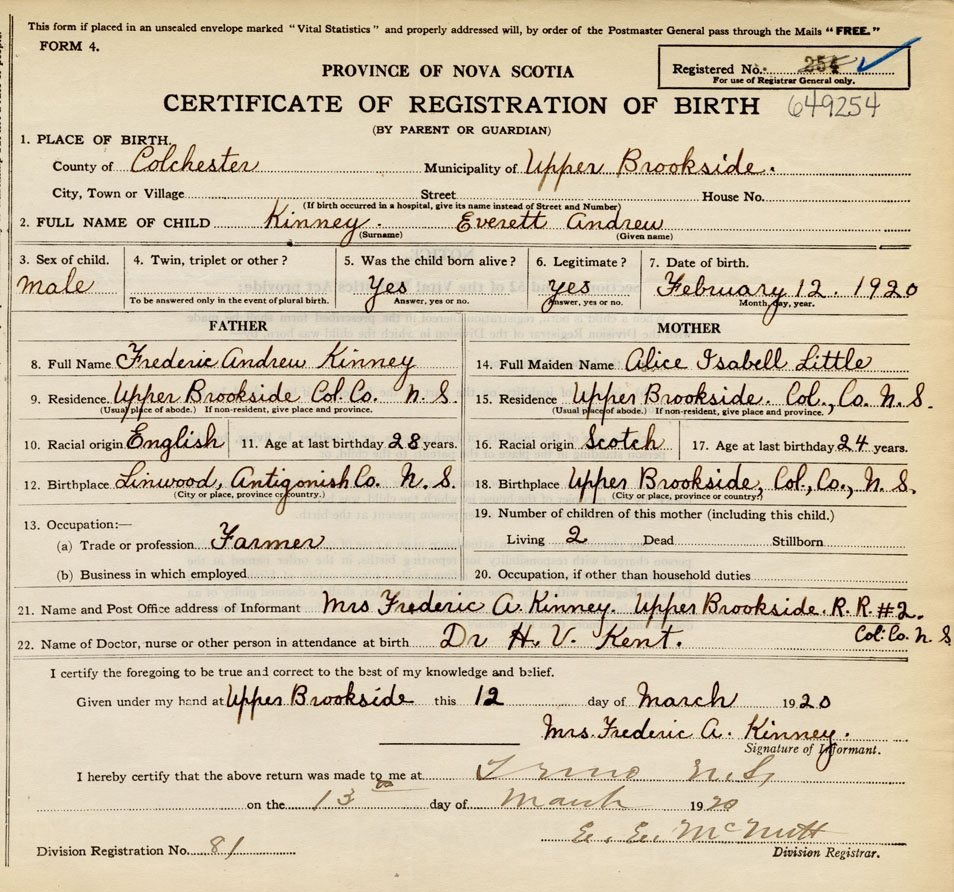 This form if placed in an unsealed envelope marked "Vital Statistics" and properly addressed will, by order of the Postmaster General pass through the Mails "FREE."
FORM 4.
Registered No. 254
For use of Registrar General only.
PROVINCE OF NOVA SCOTIA
CERTIFICATE OF REGISTRATION OF BIRTH 649254
(BY PARENT OR GUARDIAN)
1. PLACE OF BIRTH,
County of Colchester Municipality of Upper Brookside.
City, Town or Village Street House No.
(If birth occurred in a hospital, give its name instead of Street and Number)
2. FULL NAME OF CHILD Kinney. Everett Andrew
(Surname) (Given name)
3. Sex of child. 4. Twin, triplet or other? 5. Was the child born alive? 6. Legitimate? 7. Date of birth.
male Yes yes February 12. 1920
To be answered only in the event of plural birth. Answer, yes or no. Answer, yes or no. Month, day, year.
FATHER MOTHER
8. Full Name Frederic Andrew Kinney 14. Full Maiden Name Alice Isabell Little
9. Residence. Upper Brookside Col. Co. N. S. 15. Residence Upper Brookside. Col., Co. N. S.
(Usual place of abode.) If non-resident, give place and province. (Usual place of abode.) If non-resident, give place and province.
10. Racial origin English 11. Age at last birthday 28 years. 16. Racial origin Scotch 17. Age at last birthday 24 years.
12. Birthplace Linwood, Antigonish Co. N. S. 18. Birthplace Upper Brookside, Col., Co., N. S.
(City or place, province or country.) (City or place, province or country)
13. Occupation:— 19. Number of children of this mother (including this child.)
(a) Trade or profession Farmer Living 2 Dead Stillborn
(b) Business in which employed 20. Occupation, if other than household duties
21. Name and Post Office address of Informant Mrs Frederic A. Kinney. Upper Brookside. R. R. #2.
22. Name of Doctor, nurse or other person in attendance at birth Dr H. V. Kent. Col. Co. N. S
I certify the foregoing to be true and correct to the best of my knowledge and belief.
Given under my hand at Upper Brookside this 12 day of March 1920
Mrs. Frederic A. Kinney.
Signature of Informant.
I hereby certify that the above return was made to me at Truro N.S.
on the 13 day of March 1920
E. E. McNutt
Division Registration No. 81 Division Registrar.